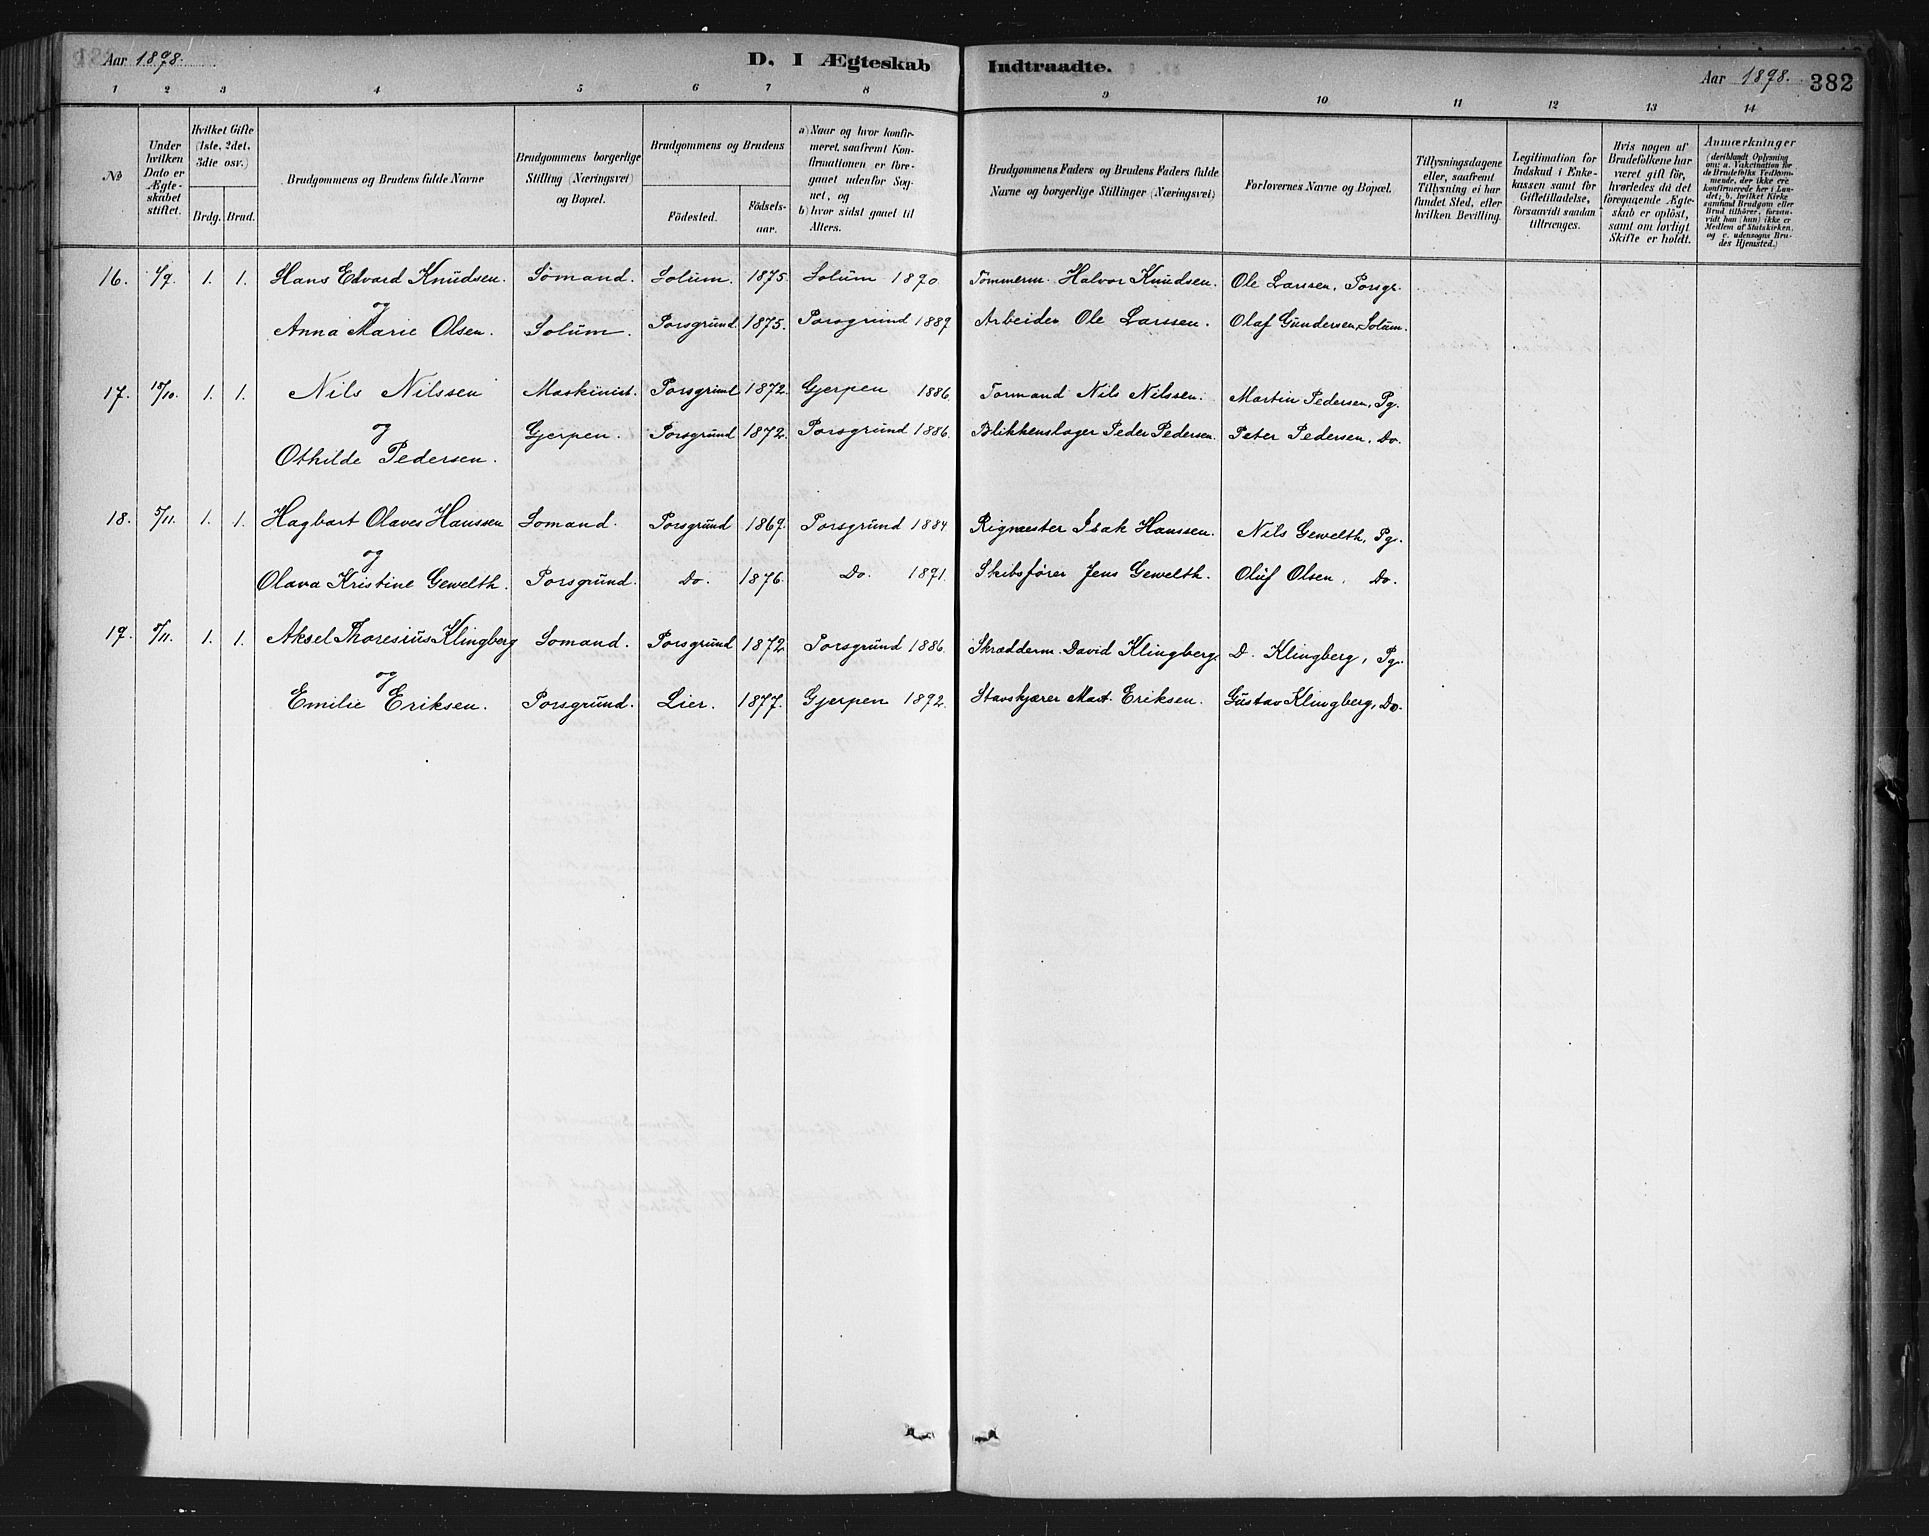 Aar 1898.
D. I Ægteskab Indtraadte.
Aar 1898. 382
1 2 3 4 5 6 7 8 9 10 11 12 13 14
No
Under hvilken Dato er Ægte-skabet stiftet.
Hvilket Gifte (1ste, 2det, 3die osv.)
Brdg. Brud.
Brudgommens og Brudens fulde Navne
Brudgommens borgerlige Stilling (Næringsvei) og Bopæl.
Brudgommens og Brudens
Födested. Födsels-aar.
a) Naar og hvor konfir-meret, saafremt Kon-firmationen er fore-gaaet udenfor Sog-net, og
b) hvor sidst gaaet til Alters.
Brudgommens Faders og Brudens Faders fulde Navne og borgerlige Stillinger (Næringsvei)
Forlovernes Navne og Bopæl.
Tillysningsdagene eller, saafremt Tillysning ei har fundet Sted, efter hvilken Bevilling.
Legitimation for Indskud i Enke-kassen samt for Giftetilladelse, forsaavidt saadan tiltrænges.
Hvis nogen af Brudefolkene har været gift för, hvorledes da det foregaaende Ægte-skab er oplöst, samt om lovligt Skifte er holdt.
Anmærkninger (deriblandt Oplysning om: a. Vakcination for de Brudefolks Vedkom-mende, der ikke ere konfirmerede her i Lan-det; b. hvilket Kirke samfund Brudgom eller Brud tilhörer, forsaa-vidt han (hun) ikke er Medlem af Statskirken, og c. udensogns Bru-des Hjemsted.)
16. 1. 1. Hans Edvard Knudsen. Sömand. Solum. 1875. Solum 1890. Tömmerm. Halvor Knudsen. Ole Larssen, Porsgr.
og
Anna Marie Olsen. Solum. Porsgrund. 1875. Porsgrund 1889 Arbeider Ole Larssen. Olaf Gundersen, Solum.
17. 1. 1. Nils Nilssen Maskinist. Porsgrund 1872. Gjerpen 1886. Formand Nils Nilssen. Martin Pedersen, Pg.
og
Gjerpen. Porsgrund 1872. Porsgrund 1886. Blikkenslager Peder Pedersen. Peter Pedersen, Do.
Othilde Pedersen.
18. 5/11. 1. 1. Hagbart Olaves Hanssen Somand. Porsgrund 1869. Porsgrund 1884. Rigmester Isak Hanssen. Nils Gewelth, Pg.
og
Olava Kristine Gewelth. Porsgrund. Do. 1876. Do. 1891. Skibsförer Jens Gewelth. Oluf Olsen, Do.
19. 1. 1. Aksel Thoresius Klingberg Somand. Porsgrund 1872 Porsgrund 1886. Skrædderm. David Klingberg. D. Klingberg, Pg.
og
Emilie Eriksen. Porsgrund. Lier. 1877. Gjerpen 1892. Stavskjærer Mart. Eriksen. Gustav Klingberg, Do.